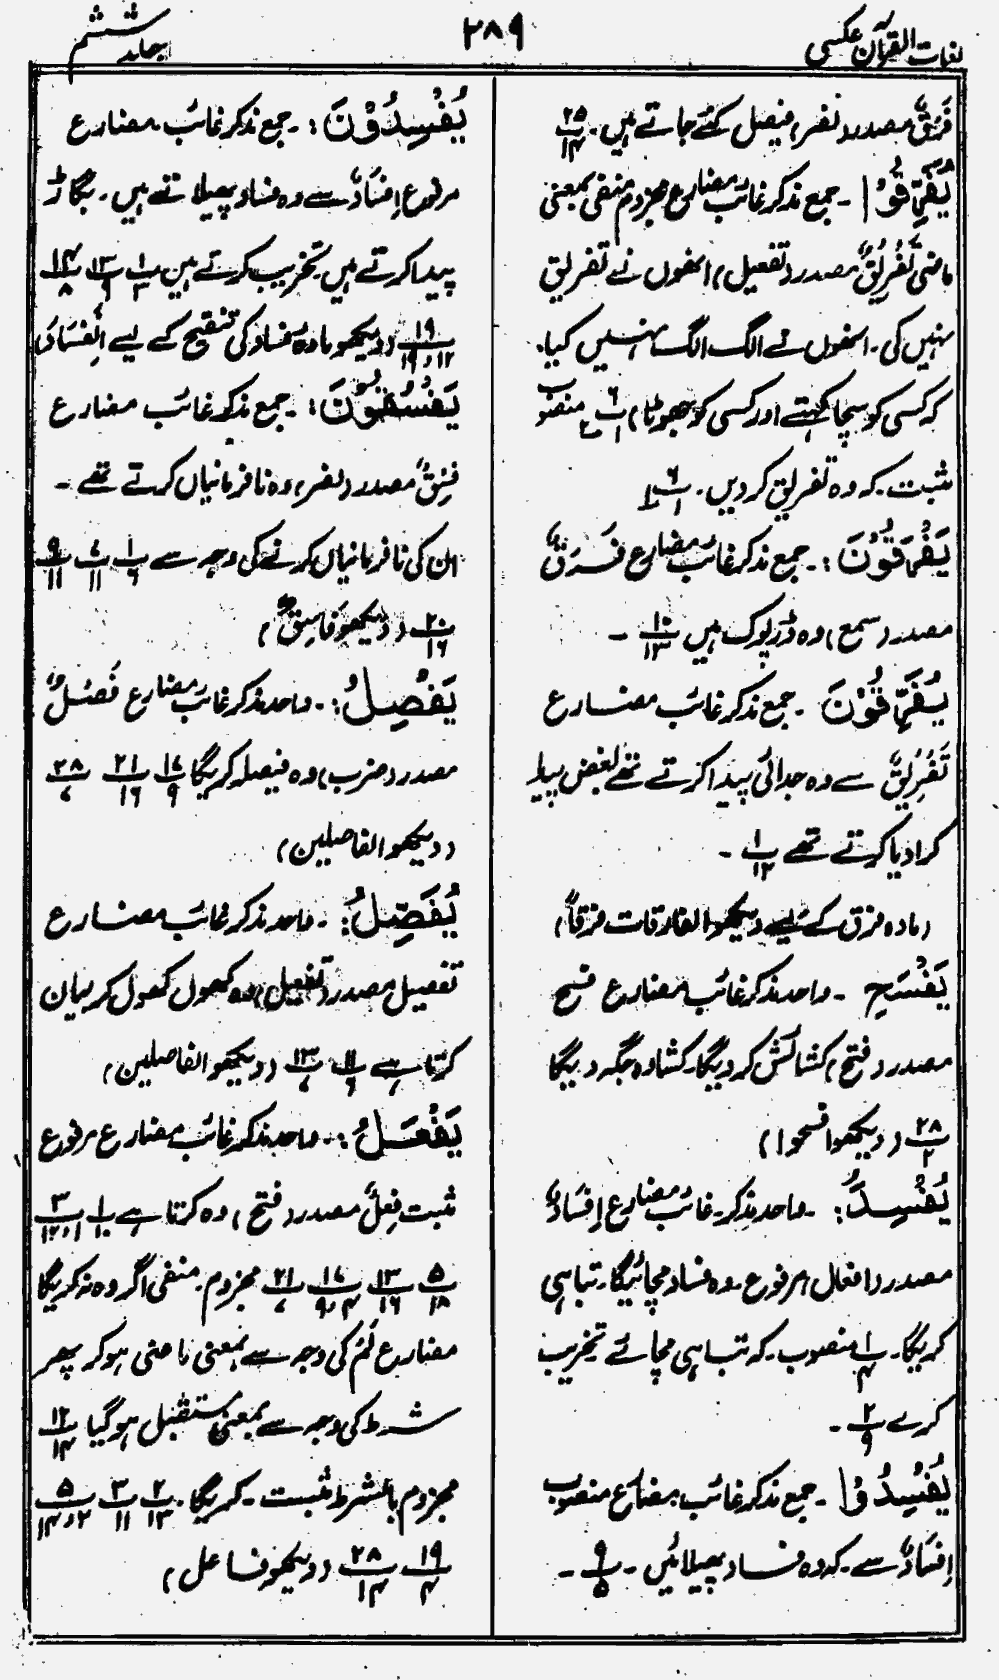 لغات القرآن عکسی
۲۸۹
جلد ششم
فَرْقٌ مصدر (نصر) فیصل کئے جاتے ہیں۔ ۲۵/۱۴
یُفَرِّقُوْا۔ جمع مذکر غائب مضارع مجزوم منفی بمعنی
ماضی تَفْرِیْقٌ مصدر (تفعیل) انھوں نے تفریق
نہیں کی۔ انھوں نے الگ الگ نہیں کیا۔
کہ کسی کو سچا کہتے اور کسی کو جھوٹا) ۶/۱ منصوب
مثبت۔ کہ وہ تفریق کر دیں۔ ۶/۱
یَفْرَقُوْنَ:۔ جمع مذکر غائب مضارع فَرَقٌ
مصدر (سمع) وہ ڈرپوک ہیں ۱۰/۱۳ ۔
یُفَرِّقُوْنَ ۔ جمع مذکر غائب مضارع
تَفْرِیْقٌ سے وہ جدائی پیدا کرتے تھے بعض پیدا
کرادیا کرتے تھے ۱/۱۲ ۔
(مادہ فرق کے لیے دیکھو الفارقات فرقاً)
یَفْسَحِ ۔ واحد مذکر غائب مضارع فسح
مصدر (فتح) کشائش کر دیگا۔ کشادہ جگہ دیگا
۲۸/۲ (دیکھو افسحوا)
یُفْسِدُ:۔ واحد مذکر۔ غائب مضارع اِفْسَادٌ
مصدر (افعال) مرفوع۔ وہ فساد مچائیگا۔ تباہی
کریگا۔ ۱/۴ منصوب۔ کہ تباہی مچائے تخریب
کرے ۲/۹ ۔
یُفْسِدُوْا ۔ جمع مذکر غائب۔ مضارع منصوب
اِفْسَادٌ سے۔ کہ وہ فساد پھیلائیں ۔ ۹/۵ ۔
یُفْسِدُوْنَ:۔ جمع مذکر غائب۔ مضارع
مرفوع اِفْسَادٌ سے وہ فساد پھیلاتے ہیں۔ بگاڑ
پیدا کرتے ہیں۔ تخریب کرتے ہیں ۱/۳ ۱۳/۹ ۱۴/۸
۱۹/۱۲،۱۹ (دیکھو مادہ فساد کی تنقیح کے لیے اَلْفَسَادَ)
یَفْسُقُوْنَ:۔ جمع مذکر غائب مضارع
فِسْقٌ مصدر (نصر) وہ نافرمانیاں کرتے تھے ۔
ان کی نافرمانیاں کرنے کی وجہ سے ۱/۶ ۷/۱۱ ۹/۱۱
۲۰/۱۶ (دیکھو فَاسِقٌ)
یَفْصِلُ:۔ واحد مذکر غائب مضارع فَصْلٌ
مصدر (ضرب) وہ فیصلہ کریگا ۱۷/۹ ۲۱/۱۶ ۲۸/۷
(دیکھو الفاصلین)
یُفَصِّلُ:۔ واحد مذکر غائب مضارع
تفصیل مصدر (تفعیل) وہ کھول کھول کر بیان
کرتا ہے ۱۱/۶ ۱۳/۷ (دیکھو الفاصلین)
یَفْعَلُ:۔ واحد مذکر غائب مضارع مرفوع
مثبت فِعْلٌ مصدر (فتح) وہ کرتا ہے ۱/۱۰ ۳/۱،۱۲
۵/۱۸ ۱۳/۱۶ ۱۷/۴،۹ ۲۱/۷ مجزوم۔ منفی اگر وہ نہ کریگا
مضارع لَمْ کی وجہ سے بمعنی ماضی ہو کر پھر
شرط کی وجہ سے بمعنی مستقبل ہو گیا ۱۲/۱۴
مجزوم بالشرط مثبت۔ کریگا۔ ۲/۱۳ ۳/۱۱ ۵/۲،۱۴
۱۹/۴ ۲۸/۱۴ (دیکھو فاعل)